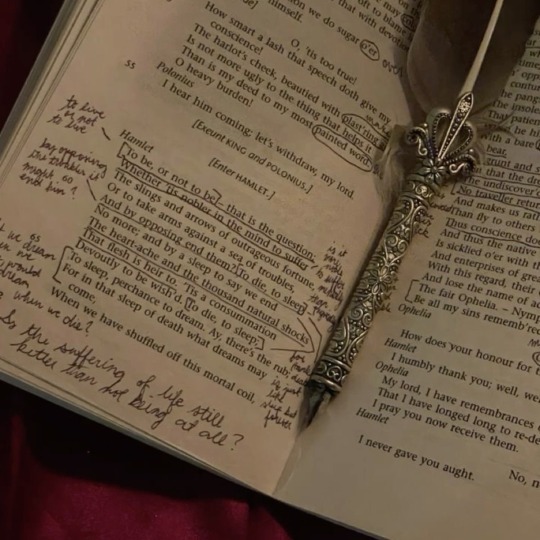 on we do sugar o'er
himself.
O, 'tis too true!
How smart a lash that speech doth give my
conscience!
The harlot's cheek, beautied with plast'ring
Is not more ugly to the thing that helps it
Than is my deed to my most painted word
O heavy burden!
55
Polonius
I hear him coming; let's withdraw, my lord.
[Exeunt KING and POLONIUS.]
[Enter HAMLET.]
Hamlet
To be, or not to be – that is the question:
Whether 'tis nobler in the mind to suffer
The slings and arrows of outrageous fortune
Or to take arms against a sea of troubles,
And by opposing end them? To die, to sleep
No more; and by a sleep to say we end
The heart-ache and the thousand natural shocks
That flesh is heir to. 'Tis a consummation
Devoutly to be wish'd. To die, to sleep;
To sleep, perchance to dream. Ay, there's the rub;
For in that sleep of death what dreams may
come,
When we have shuffled off this mortal coil,
to live
or not
to live
by opposing
his troubles
might so
end him?
as
we dream
would
dream
when we die?
Is the suffering of life still
better than not being at all?
is it
With a bare
bear,
grunt and
that the
The undiscover'd
No traveller return
And makes us rat
Than fly to others
Thus conscience do
And thus the native
Is sicklied o'er with th
And enterprises of grea
With this regard, their
And lose the name of ac
The fair Ophelia. – Nymp
Be all my sins rememb'red
Ophelia
How does your honour for
Hamlet
I humbly thank you; well, wel
Ophelia
My lord, I have remembrances
That I have longed long to re-de
I pray you now receive them.
Hamlet
No, n
I never gave you aught.